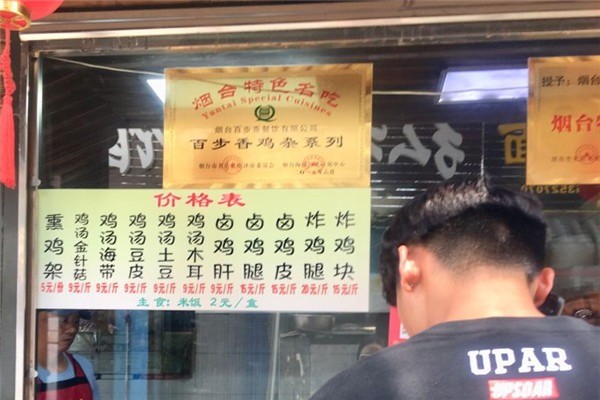 烟台特色名吃
Yantai Special Cuisines
烟台百步香餐饮有限公司
百步香鸡杂系列
授予：烟
烟台特
价格表
熏鸡架 5元/份
鸡汤金针菇 9元/斤
鸡汤海带 9元/斤
鸡汤豆皮 9元/斤
鸡汤土豆 9元/斤
鸡汤木耳 9元/斤
卤鸡肝 15元/斤
卤鸡腿 15元/斤
卤鸡皮 15元/斤
炸鸡腿 20元/斤
炸鸡块 15元/斤
主食：米饭 2元/盒
面
UPAR
UPSOAR